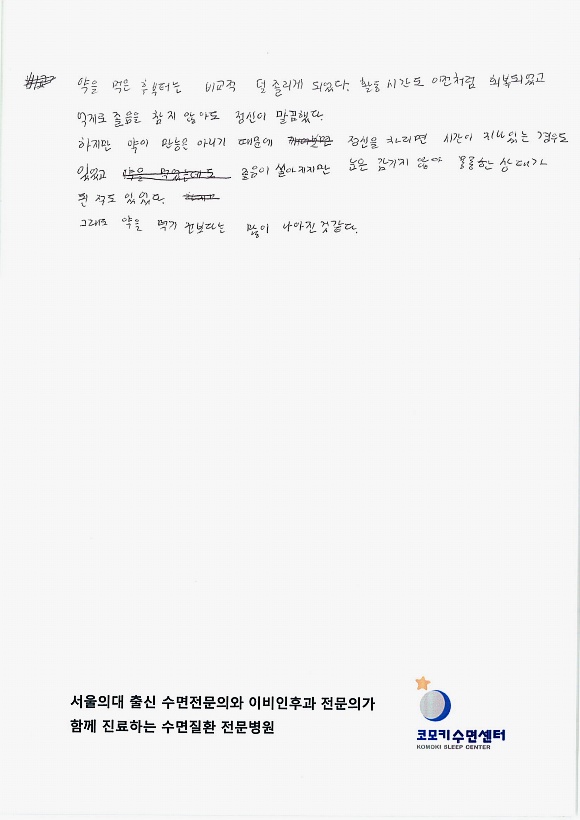 약을 먹은 후부터는 비교적 덜 졸리게 되었다. 활동 시간도 이전처럼 회복되었고
억지로 졸음을 참지 않아도 정신이 말끔했다.
하지만 약이 만능은 아니기 때문에 정신을 차리면 시간이 지나있는 경우도
있었고 약을 먹었는데도 졸음이 쏟아지지만 눈은 감기지 않아 몽롱한 상태가
된 적도 있었다. 하지만
그래도 약을 먹기 전보다는 많이 나아진 것 같다.
서울의대 출신 수면전문의와 이비인후과 전문의가
함께 진료하는 수면질환 전문병원
코모키수면센터
KOMOKI SLEEP CENTER